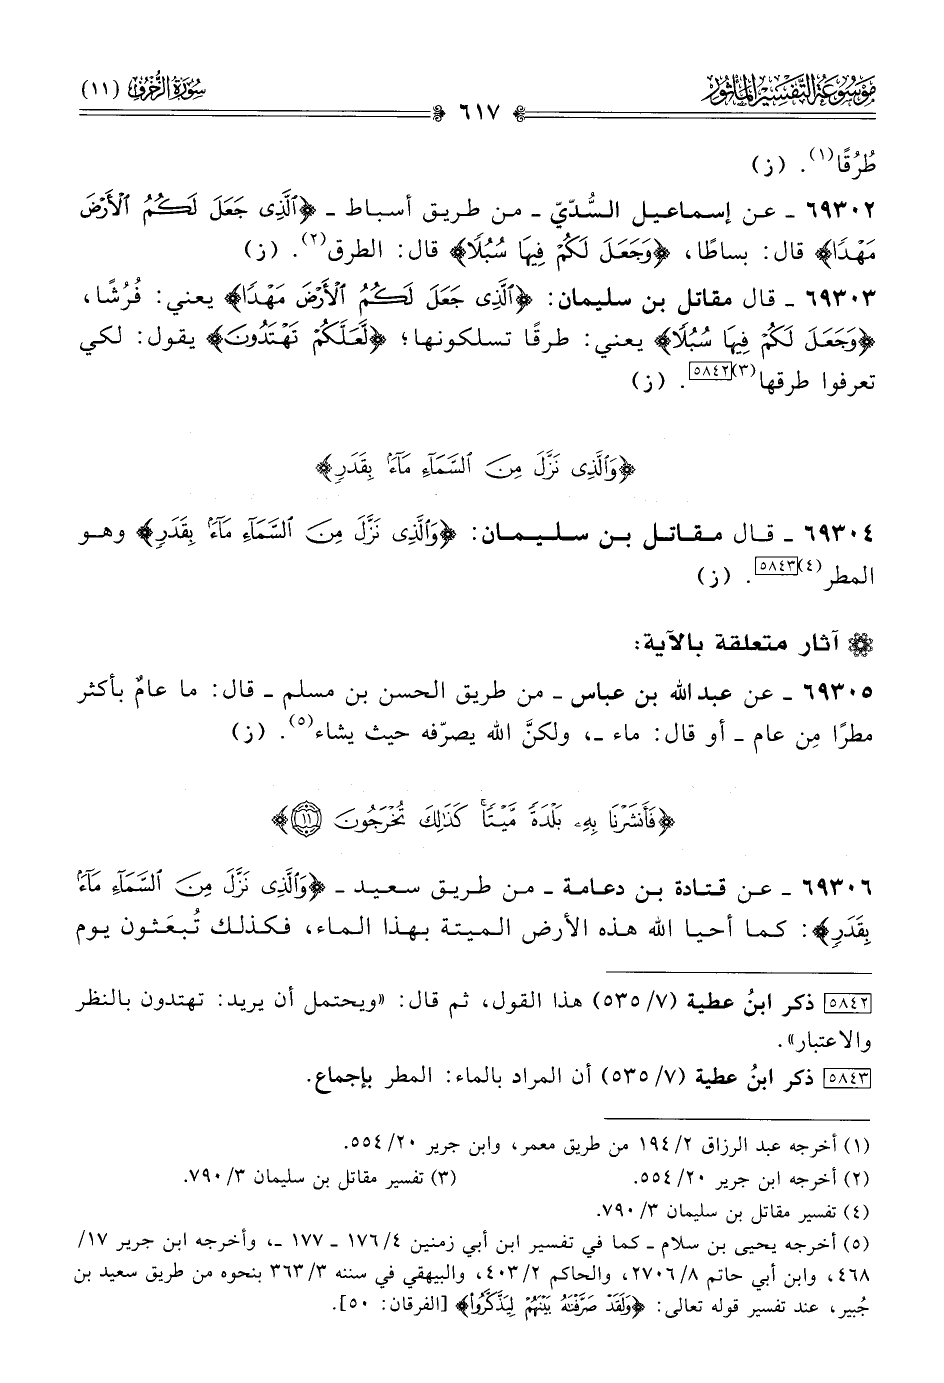 مَوْسُوعَةُ التَّفْسِيرِ الْمَأْثُورِ
سُورَةُ الزُّخْرُفِ (١١)
٦١٧
طُرُقًا(١). (ز)
٦٩٣٠٢ ـ عن إسماعيل السُّدّيّ ـ من طريق أسباط ـ ﴿ٱلَّذِى جَعَلَ لَكُمُ ٱلْأَرْضَ
مَهْدًا﴾ قال: بساطًا، ﴿وَجَعَلَ لَكُمْ فِيهَا سُبُلًا﴾ قال: الطرق(٢). (ز)
٦٩٣٠٣ ـ قال مقاتل بن سليمان: ﴿ٱلَّذِى جَعَلَ لَكُمُ ٱلْأَرْضَ مَهْدًا﴾ يعني: فُرُشًا،
﴿وَجَعَلَ لَكُمْ فِيهَا سُبُلًا﴾ يعني: طرقًا تسلكونها؛ ﴿لَّعَلَّكُمْ تَهْتَدُونَ﴾ يقول: لكي
تعرفوا طرقها(٣)[٥٨٤٢]. (ز)
﴿وَٱلَّذِى نَزَّلَ مِنَ ٱلسَّمَآءِ مَآءًۢ بِقَدَرٍ﴾
٦٩٣٠٤ ـ قال مقاتل بن سليمان: ﴿وَٱلَّذِى نَزَّلَ مِنَ ٱلسَّمَآءِ مَآءًۢ بِقَدَرٍ﴾ وهو
المطر(٤)[٥٨٤٣]. (ز)
آثار متعلقة بالآية:
٦٩٣٠٥ ـ عن عبد الله بن عباس ـ من طريق الحسن بن مسلم ـ قال: ما عامٌ بأكثر
مطرًا مِن عام ـ أو قال: ماء ـ، ولكنَّ الله يصرّفه حيث يشاء(٥). (ز)
﴿فَأَنشَرْنَا بِهِۦ بَلْدَةً مَّيْتًا ۚ كَذَٰلِكَ تُخْرَجُونَ ١١﴾
٦٩٣٠٦ ـ عن قتادة بن دعامة ـ من طريق سعيد ـ ﴿وَٱلَّذِى نَزَّلَ مِنَ ٱلسَّمَآءِ مَآءًۢ
بِقَدَرٍ﴾: كما أحيا الله هذه الأرض الميتة بهذا الماء، فكذلك تُبعَثون يوم
[٥٨٤٢] ذكر ابنُ عطية (٧/ ٥٣٥) هذا القول، ثم قال: «ويحتمل أن يريد: تهتدون بالنظر
والاعتبار».
[٥٨٤٣] ذكر ابنُ عطية (٧/ ٥٣٥) أن المراد بالماء: المطر بإجماع.
(١) أخرجه عبد الرزاق ٢/ ١٩٤ من طريق معمر، وابن جرير ٢٠/ ٥٥٤.
(٢) أخرجه ابن جرير ٢٠/ ٥٥٤. (٣) تفسير مقاتل بن سليمان ٣/ ٧٩٠.
(٤) تفسير مقاتل بن سليمان ٣/ ٧٩٠.
(٥) أخرجه يحيى بن سلام ـ كما في تفسير ابن أبي زمنين ٤/ ١٧٦ ـ ١٧٧ ـ، وأخرجه ابن جرير ١٧/
٤٦٨، وابن أبي حاتم ٨/ ٢٧٠٦، والحاكم ٢/ ٤٠٣، والبيهقي في سننه ٣/ ٣٦٣ بنحوه من طريق سعيد بن
جُبير، عند تفسير قوله تعالى: ﴿وَلَقَدْ صَرَّفْنَٰهُ بَيْنَهُمْ لِيَذَّكَّرُوا۟﴾ [الفرقان: ٥٠].